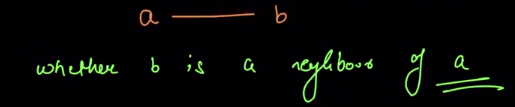 a — b
whether b is a neighbour of a